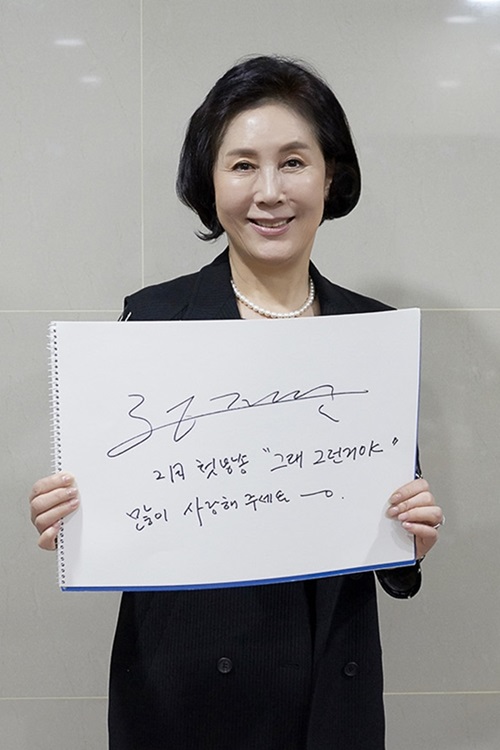 2月 첫방송 "그래 그런거야"
많이 사랑해 주세요 ~.